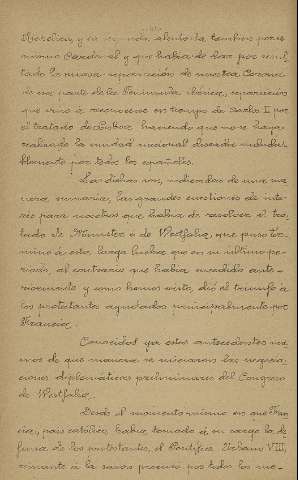 y la segunda, abierta tambien por el
mismo Cardenal y que habia de dar por resul-
tado la nueva separación de nuestra Corona
de esa parte de la Península ibérica, separación
que vino á reconocerse en tiempo de Carlos II por
el tratado de Lisboa haciendo que no se haya
realizado la unidad nacional deseada indudable-
blemente por todos los españoles.
Las dichas son, indicadas de una ma-
nera sumaria, las grandes cuestiones de inte-
rés para nosotros que había de resolver el tra-
tado de Munster ó de Westfalia, que puso tér-
mino á esta larga lucha que en su último pe-
riodo, al contrario que habia sucedido ante-
riormente y como hemos visto, dió el triunfo á
los protestantes ayudados principalmente por
Francia.
Conocidos ya estos antecedentes vea-
mos de que manera se iniciaron las negocia-
ciones diplomáticas preliminares del Congreso
de Westfalia.
Desde el momento mismo en que Fran-
cia, pais católico, habia tomado á su cargo la de-
fensa de los protestantes, el Pontífice Urbano VIII,
reinante á la sazón procuró por todos los me-